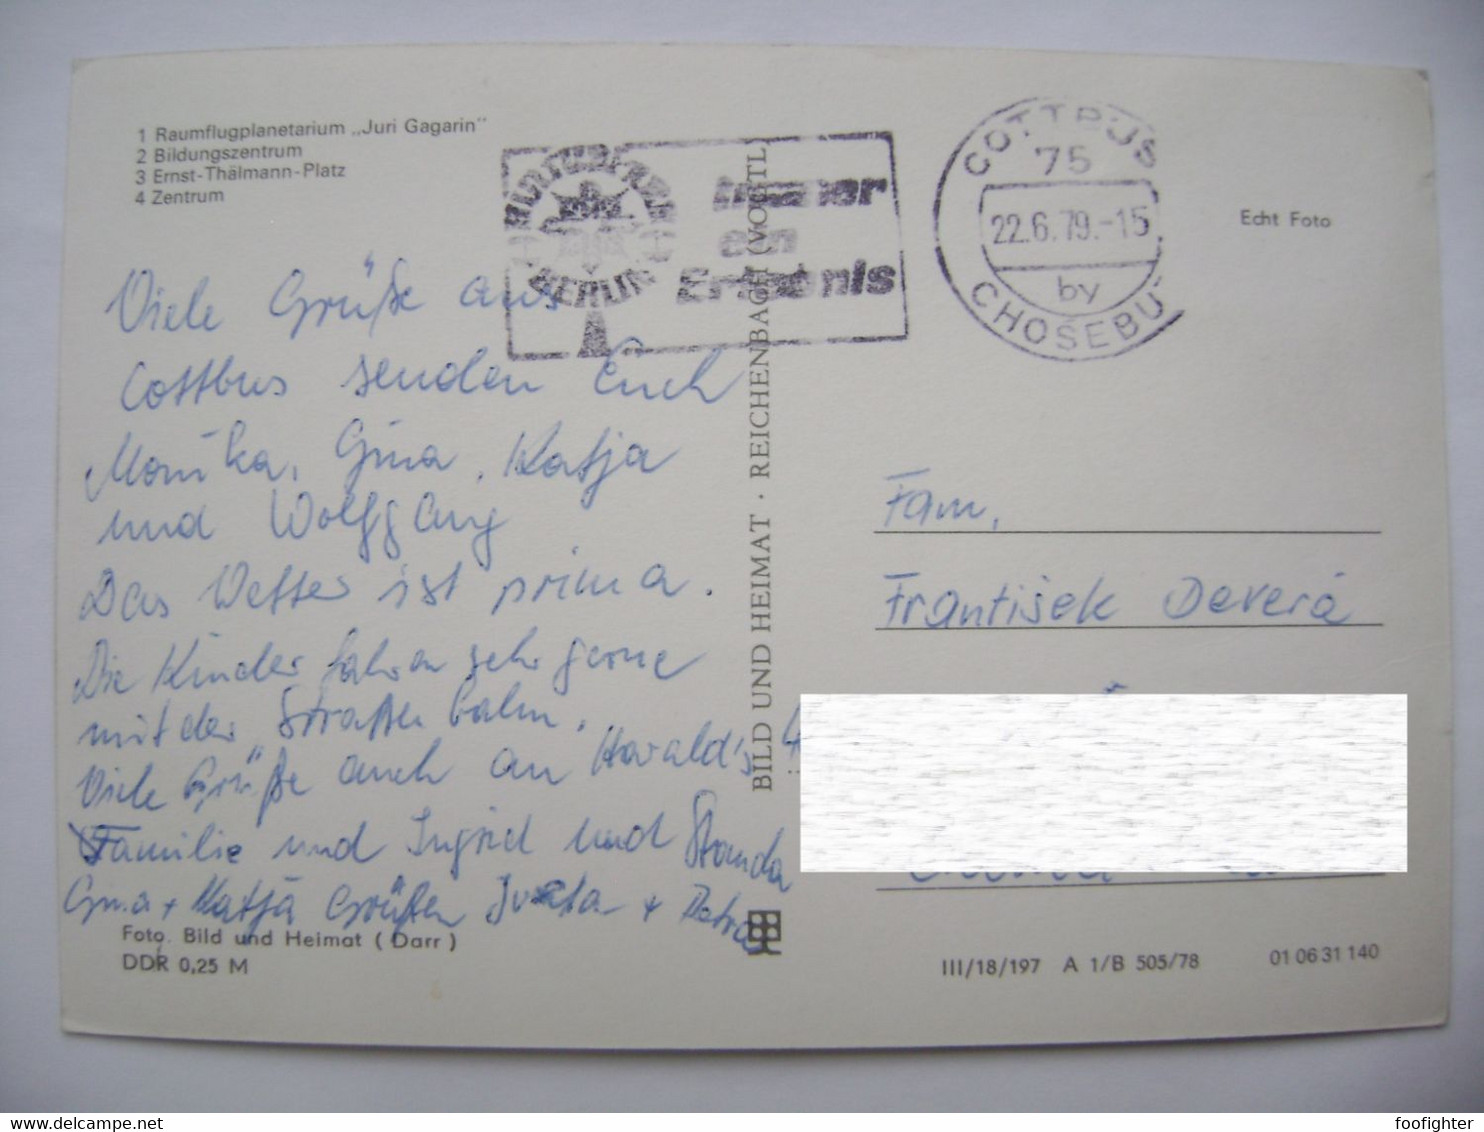 1 Raumflugplanetarium „Juri Gagarin"
2 Bildungszentrum
3 Ernst-Thälmann-Platz
4 Zentrum
BERLIN
Immer
ein
Erlebnis
COTTBUS
75
22.6.79.-15
by
CHOŚEBU
Echt Foto
Viele Grüße aus
Cottbus senden Euch
Monika, Gina, Katja
und Wolfgang
Das Wetter ist prima.
Die Kinder fahren sehr gerne
mit der Straßenbahn.
Viele Grüße auch an Harald's
Familie und Ingrid und Standa
Gina + Katja Grüßen + Petra
Foto. Bild und Heimat (Darr)
DDR 0,25 M
BILD UND HEIMAT · REICHENBACH (VOGTL)
Fam.
František Deverá
III/18/197 A 1/B 505/78
01 06 31 140
Hosted on www.delcampe.net
foofighter